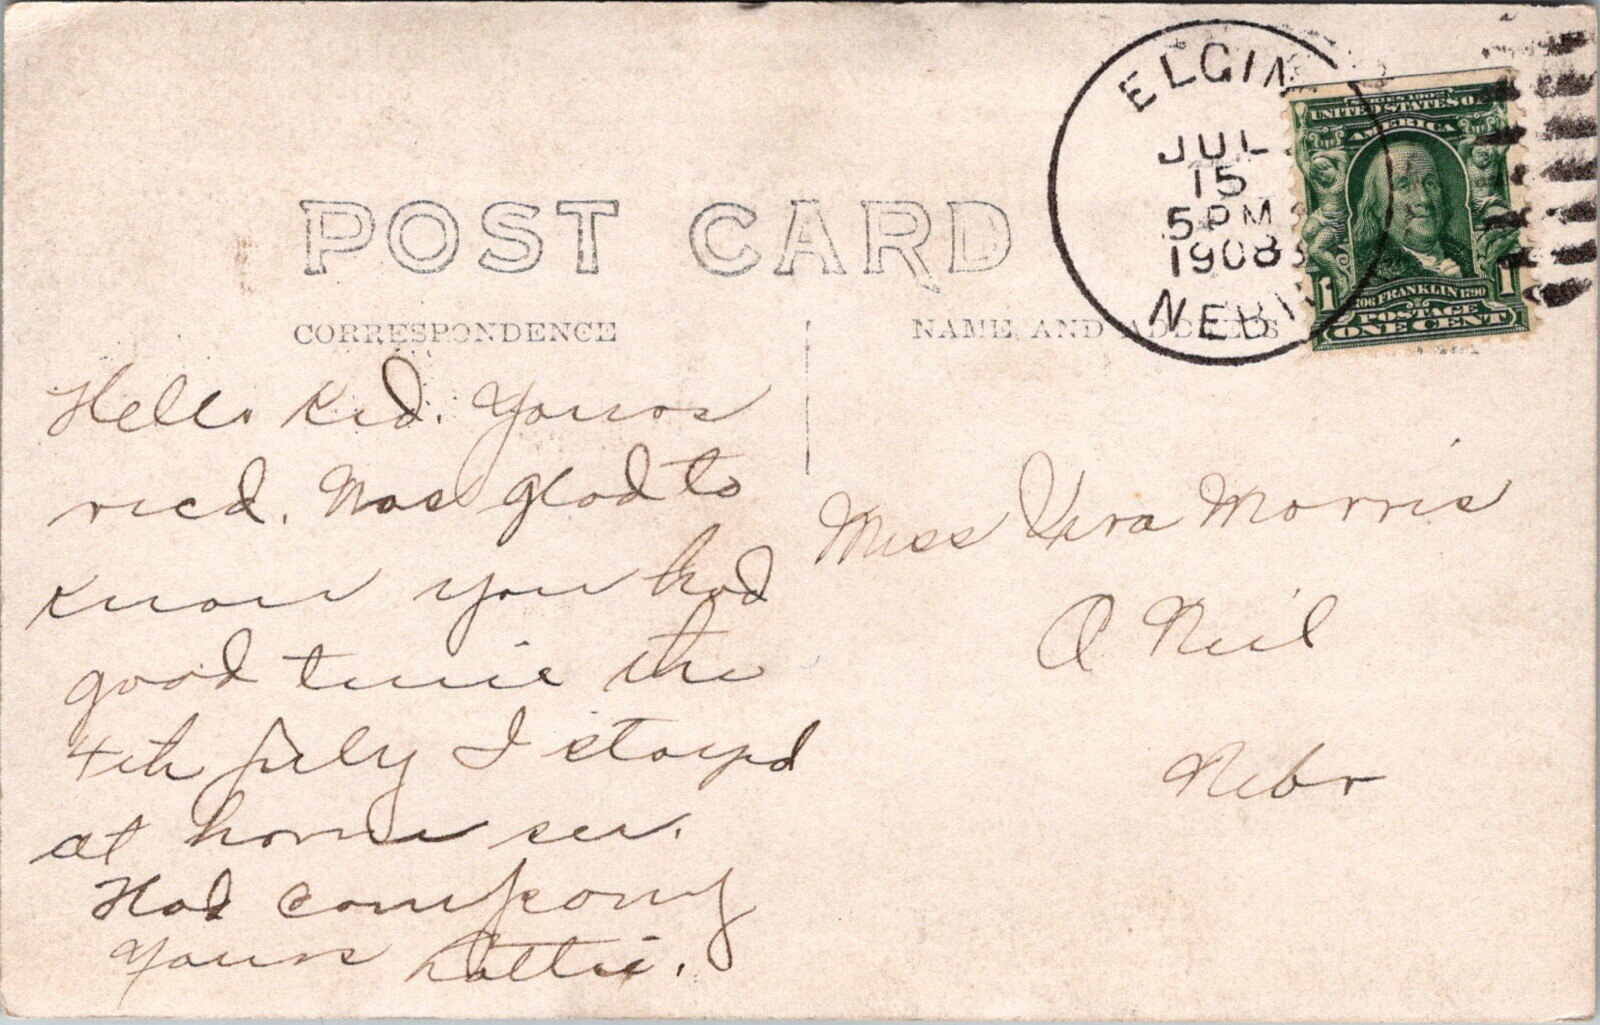 POST CARD
CORRESPONDENCE
NAME AND ADDRESS
ELGIN
JUL
15
5 PM
1908
NEBR
SERIES 1902
UNITED STATES OF
AMERICA
1706 FRANKLIN 1790
1 1
POSTAGE
ONE CENT
Hello Kid. Yours
recd. Was glad to
know you had
good time the
4th July I stayed
at home
Had company
Yours Lottie.
Miss Vera Morris
O Neil
Nebr